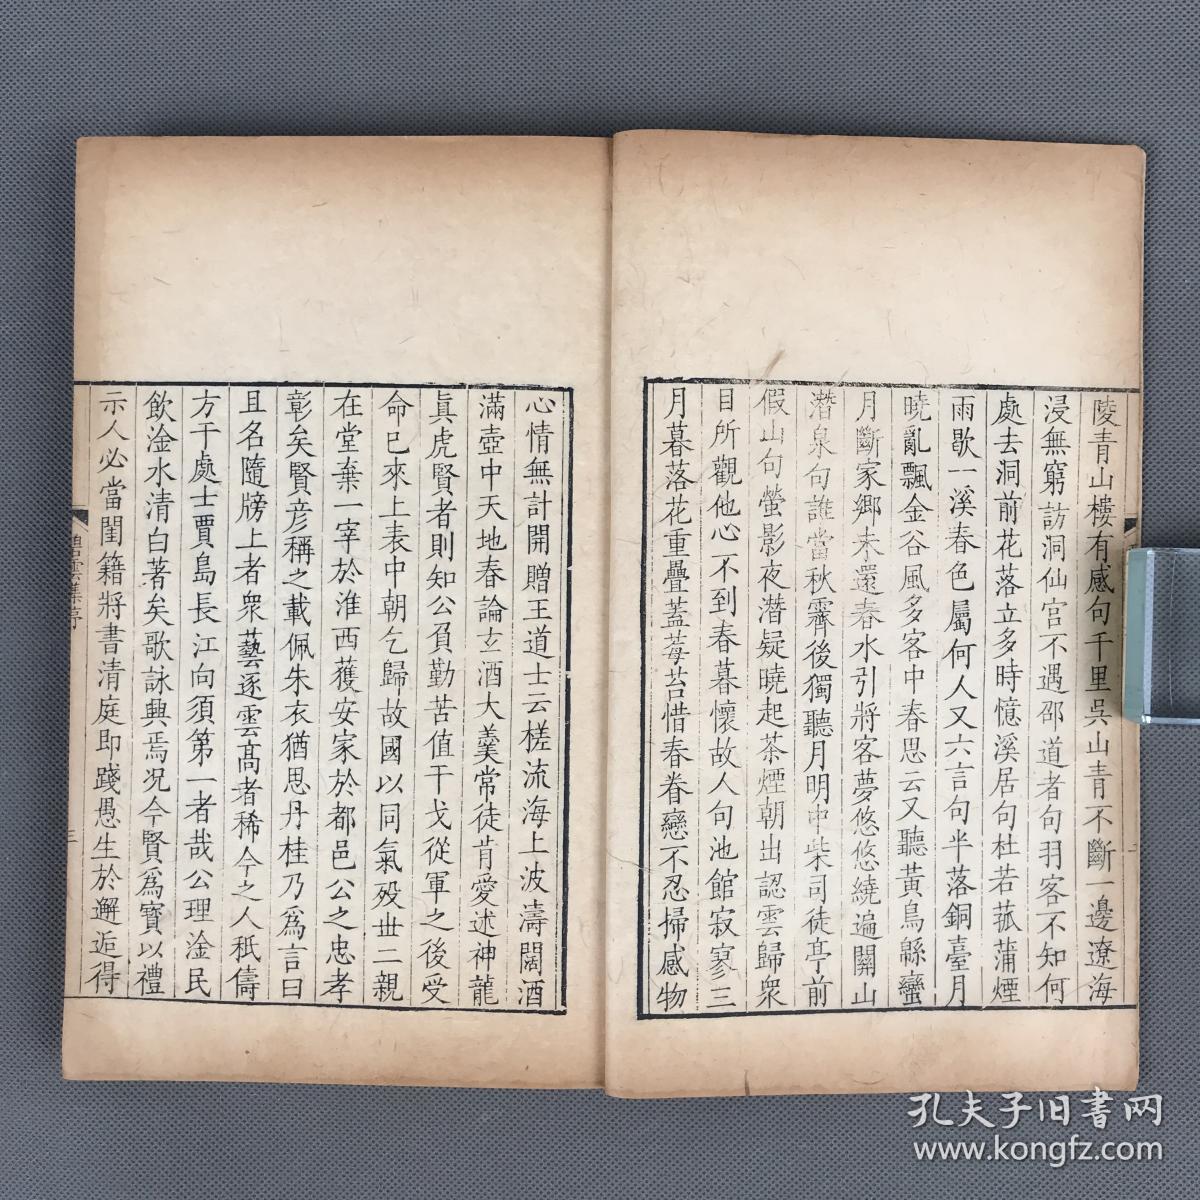 陵青山樓有感句千里吳山青不斷一邊遼海
浸無窮訪洞仙宮不遇邵道者句羽客不知何
處去洞前花落立多時憶溪居句杜若菰蒲煙
雨歇一溪春色屬何人又六言句半落銅臺月
曉亂飄金谷風多客中春思云又聽黃鳥緜蠻
月斷家鄉未還春水引將客夢悠悠繞遍關山
潛泉句誰當秋霽後獨聽月明中柴司徒亭前
假山句螢影夜潛疑曉起茶煙朝出認雲歸衆
目所觀他心不到春暮懷故人句池館寂寥三
月暮落花重疊蓋莓苔惜春眷戀不忍掃感物
心情無計開贈王道士云槎流海上波濤闊酒
滿壺中天地春論玄酒大羹常徒肯愛述神龍
眞虎賢者則知公負勤苦值干戈從軍之後受
命已來上表中朝乞歸故國以同氣歿世二親
在堂棄一宰於淮西獲安家於都邑公之忠孝
彰矣賢彥稱之載佩朱衣猶思丹桂乃爲言曰
且名隨牓上者衆藝逐雲高者稀今之人秖儔
方干處士賈島長江向須第一者哉公理淦民
飲淦水清白著矣歌詠興焉况今賢爲寳以禮
示人必當閨籍將書清庭即踐愚生於邂逅得
碧雲集序
三
孔夫子旧書网
www.kongfz.com